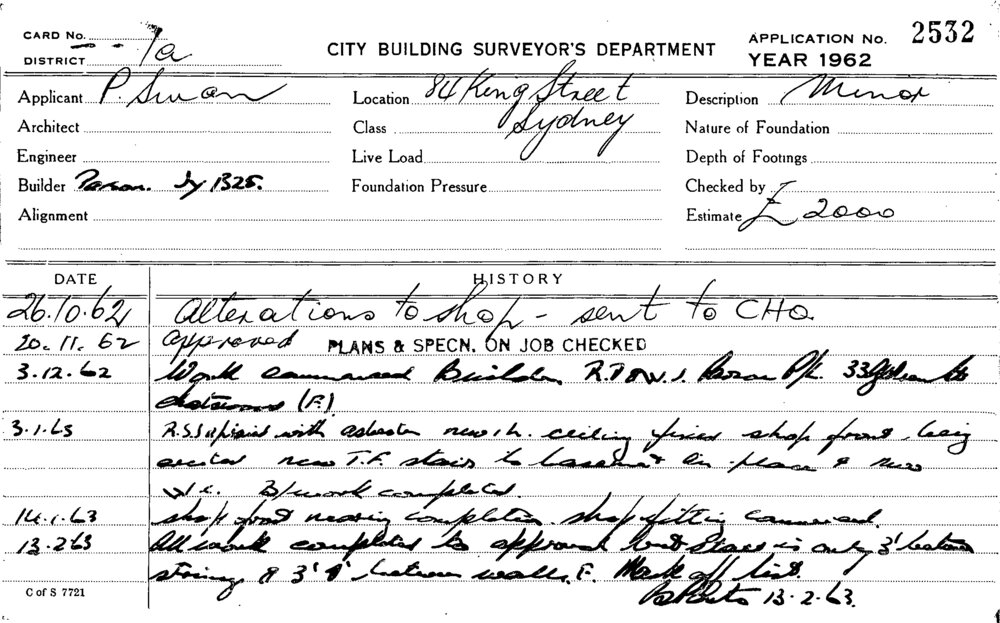 CARD No.
DISTRICT 7a
CITY BUILDING SURVEYOR'S DEPARTMENT
APPLICATION No. 2532
YEAR 1962
Applicant P. Swan
Location 84 King Street
Sydney
Description Minor
Architect
Class
Nature of Foundation
Engineer
Live Load
Depth of Footings
Builder 1325.
Foundation Pressure
Checked by
Alignment
Estimate £ 2000
DATE HISTORY
26.10.62 Alterations to shop - sent to CHO
20.11.62 approved PLANS & SPECN. ON JOB CHECKED
3.12.62 Work commenced Builder R.T & W.J. P/L. 33
(F.)
3.1.63 R.S.J with asbestos new ceiling fixed shop front being
erected new T.F. stair to basement in place & new
W.C. B/work completed.
14.1.63 shop front nearing completion. shop fitting commenced.
13.2.63 All work completed to approval but Stair is only 3' between
strings & 3' between walls. F. Mark off list.
13.2.63.
C of S 7721